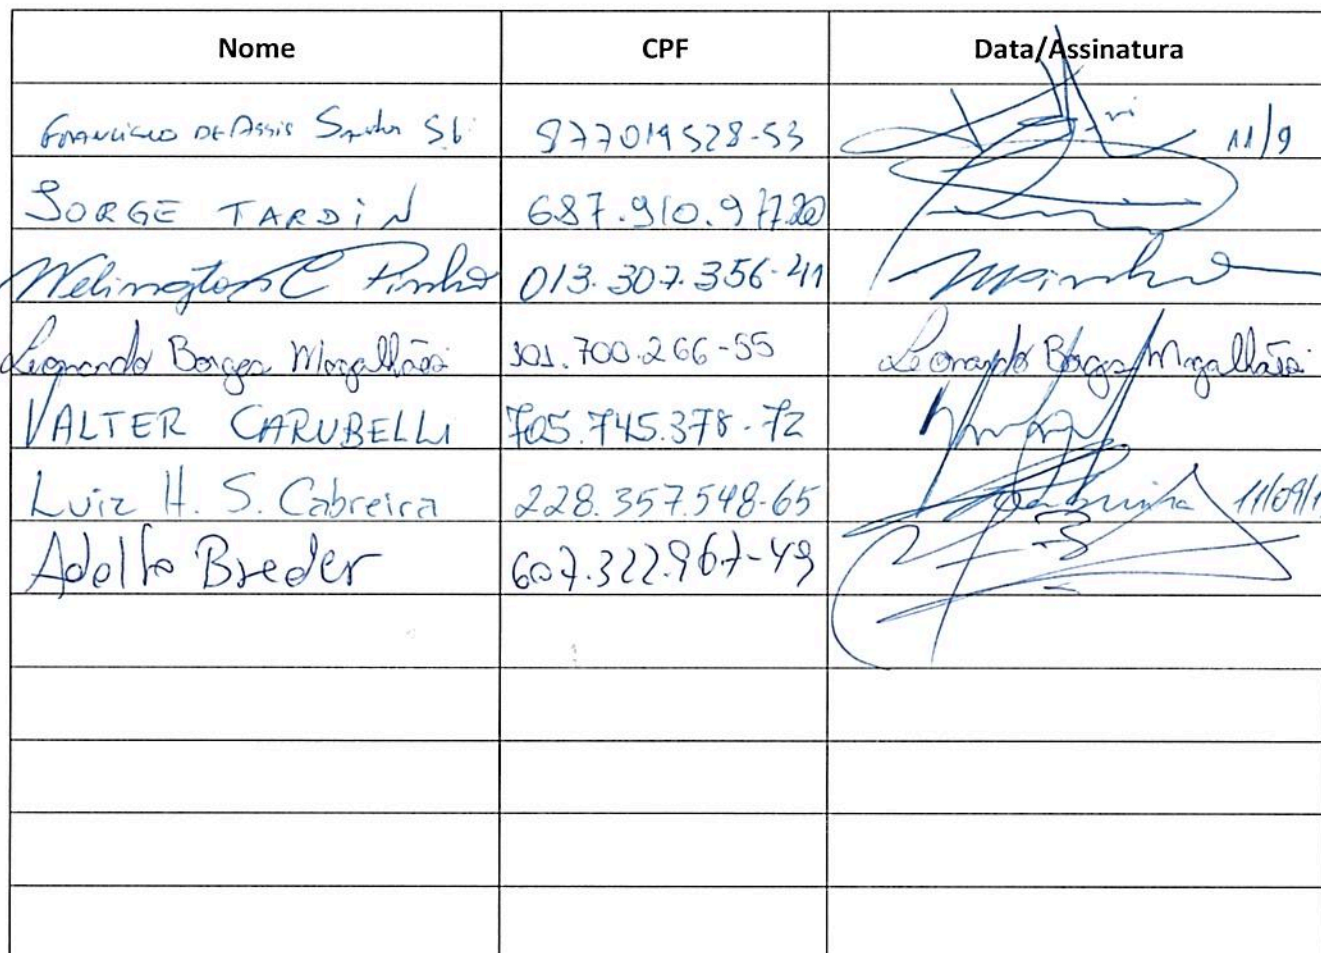 Nome CPF Data/Assinatura
Francisco de Assis Santos 877019528-53 11/9
JORGE TARDIN 687.910.977.20
Welington C Pinho 013.307.356-41 WPinho
Leonardo Borges Magalhães 101.700.266-55 Leonardo Borges Magalhães
VALTER CARUBELLI 705.745.378-72
Luiz H. S. Cabreira 228.357.548-65 11/09/1
Adolfo Breder 607.322.967-49